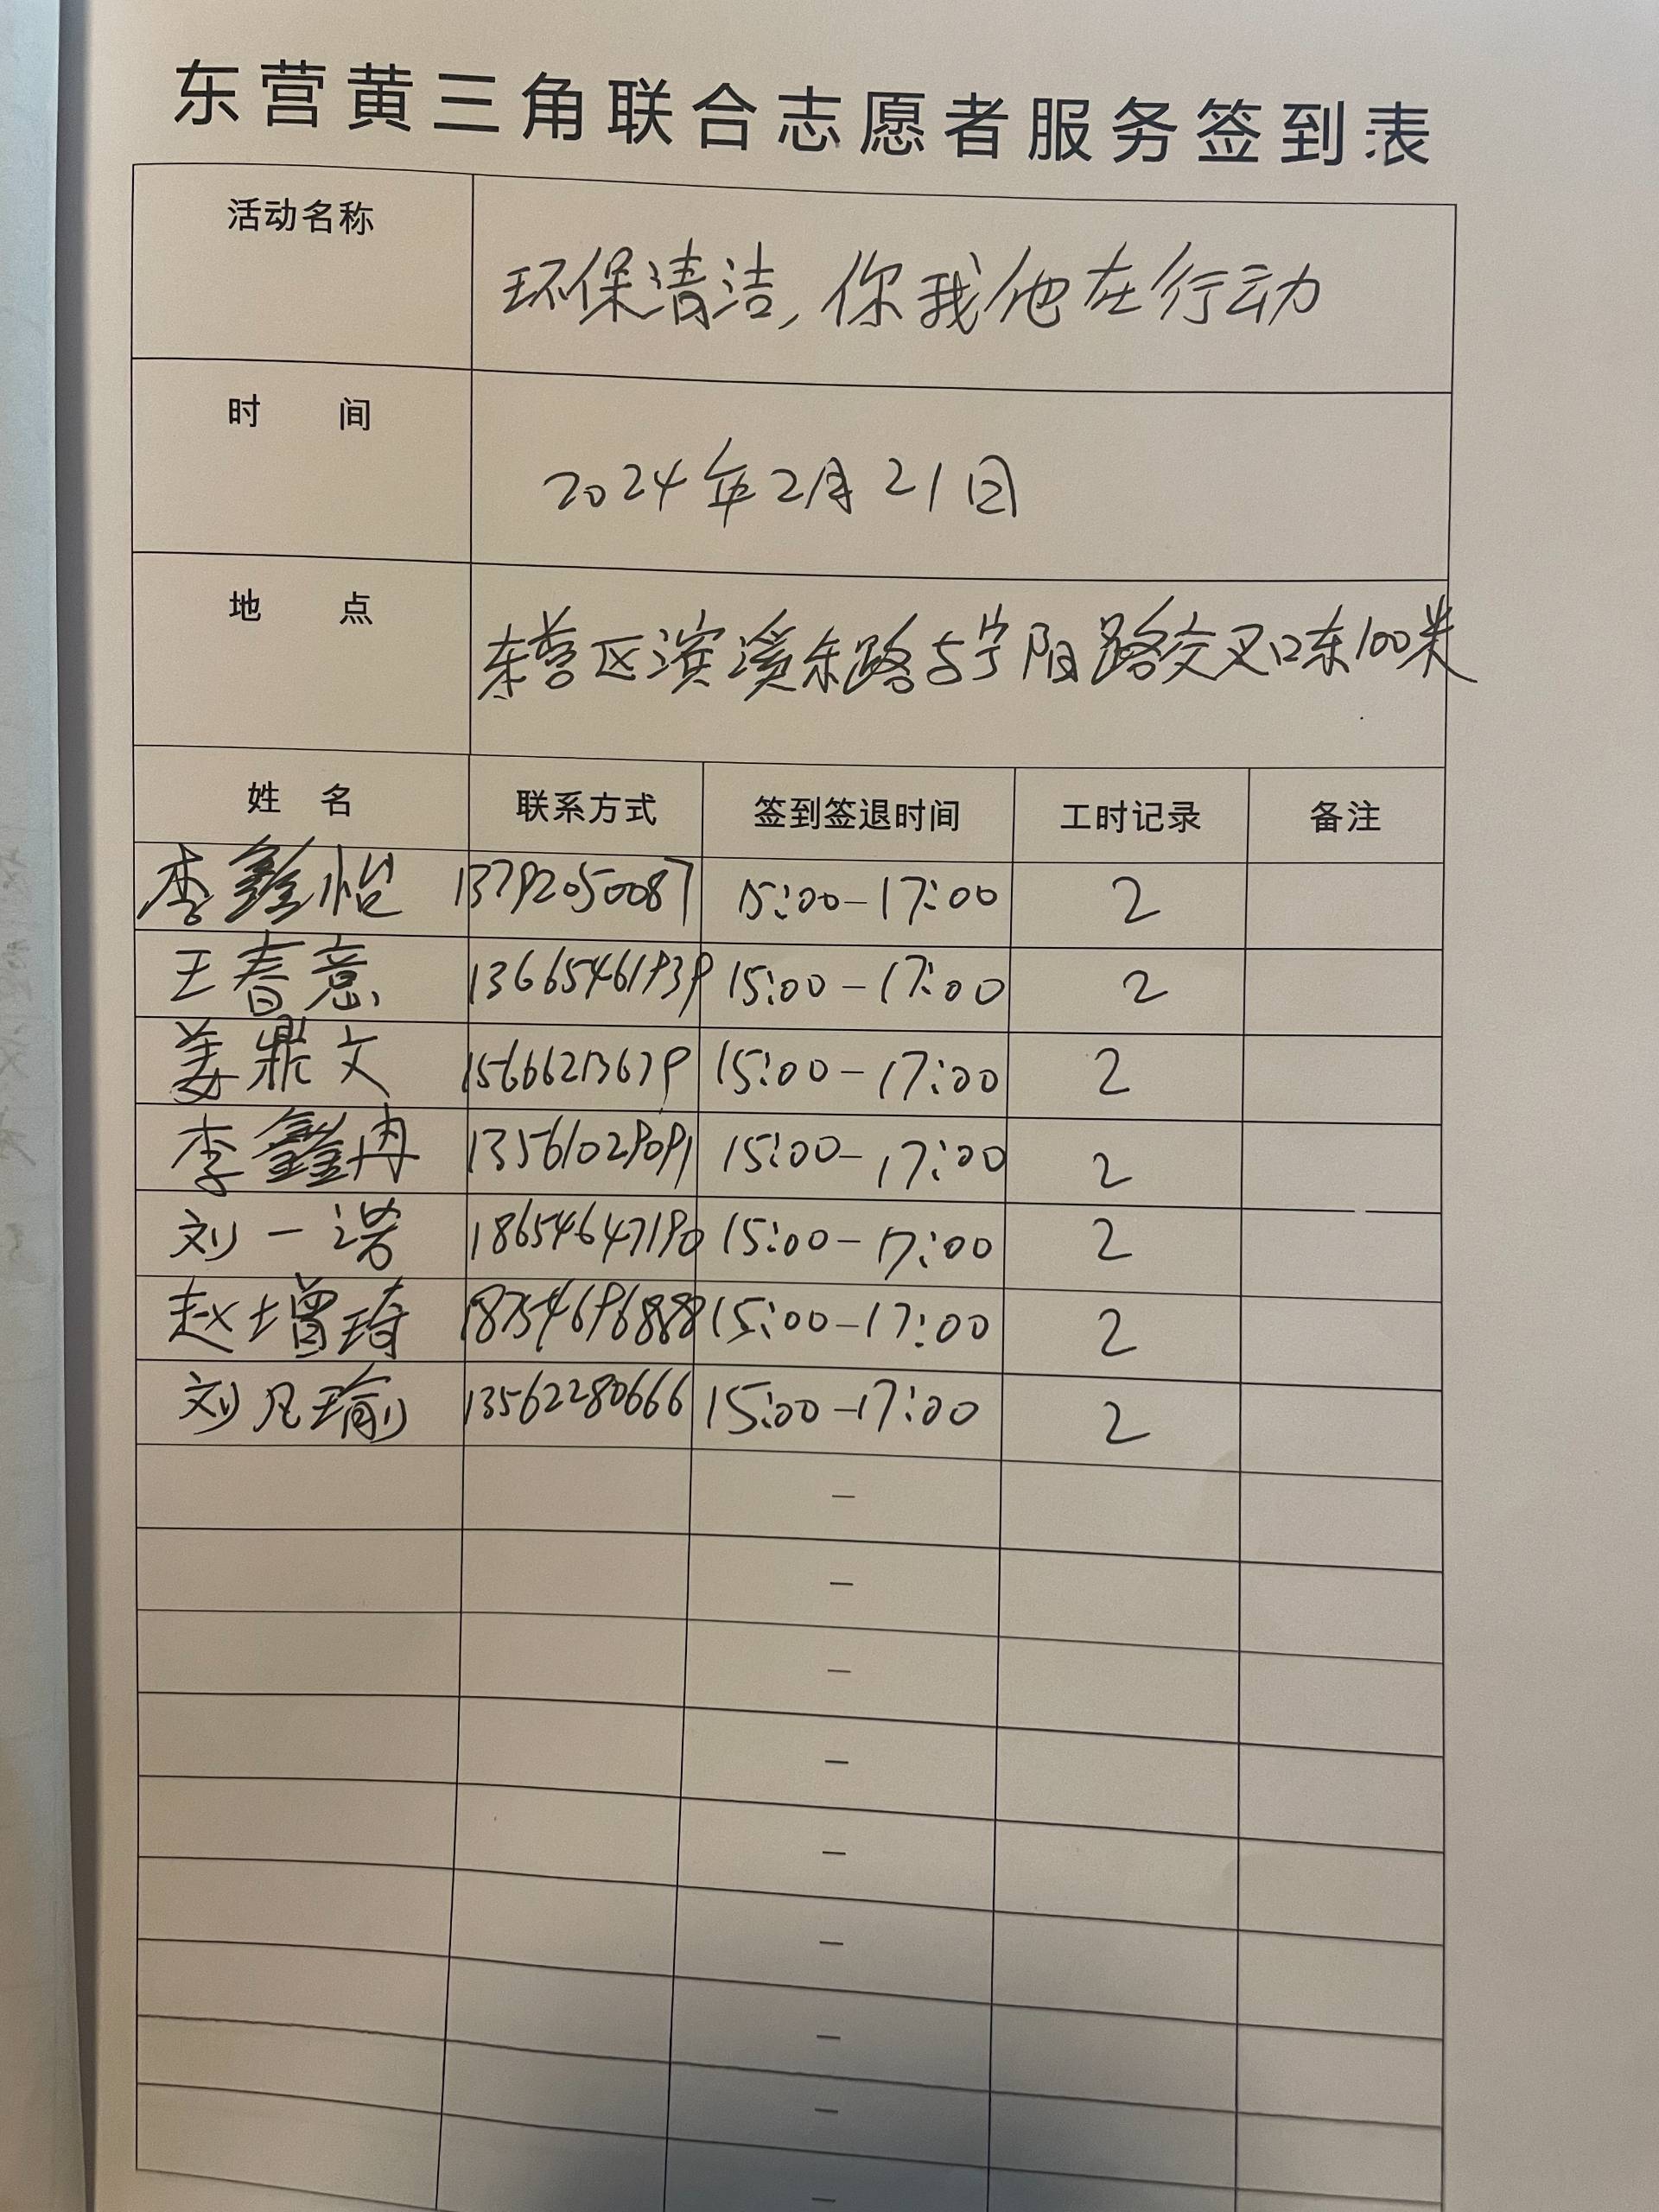 东营黄三角联合志愿者服务签到表
活动名称 环保清洁,你我他在行动
时 间 2024年2月21日
地 点 东营区滨溪东路与宁阳路交叉口东100米
姓 名 联系方式 签到签退时间 工时记录 备注
李鑫怡 13792050087 15:00-17:00 2
王春意 13665461939 15:00-17:00 2
姜鼎文 15666213679 15:00-17:00 2
李鑫冉 13561029091 15:00-17:00 2
刘一诺 18654647190 15:00-17:00 2
赵增琦 18754696888 15:00-17:00 2
刘凡瑜 13562280666 15:00-17:00 2
—
—
—
—
—
—
—
—
—